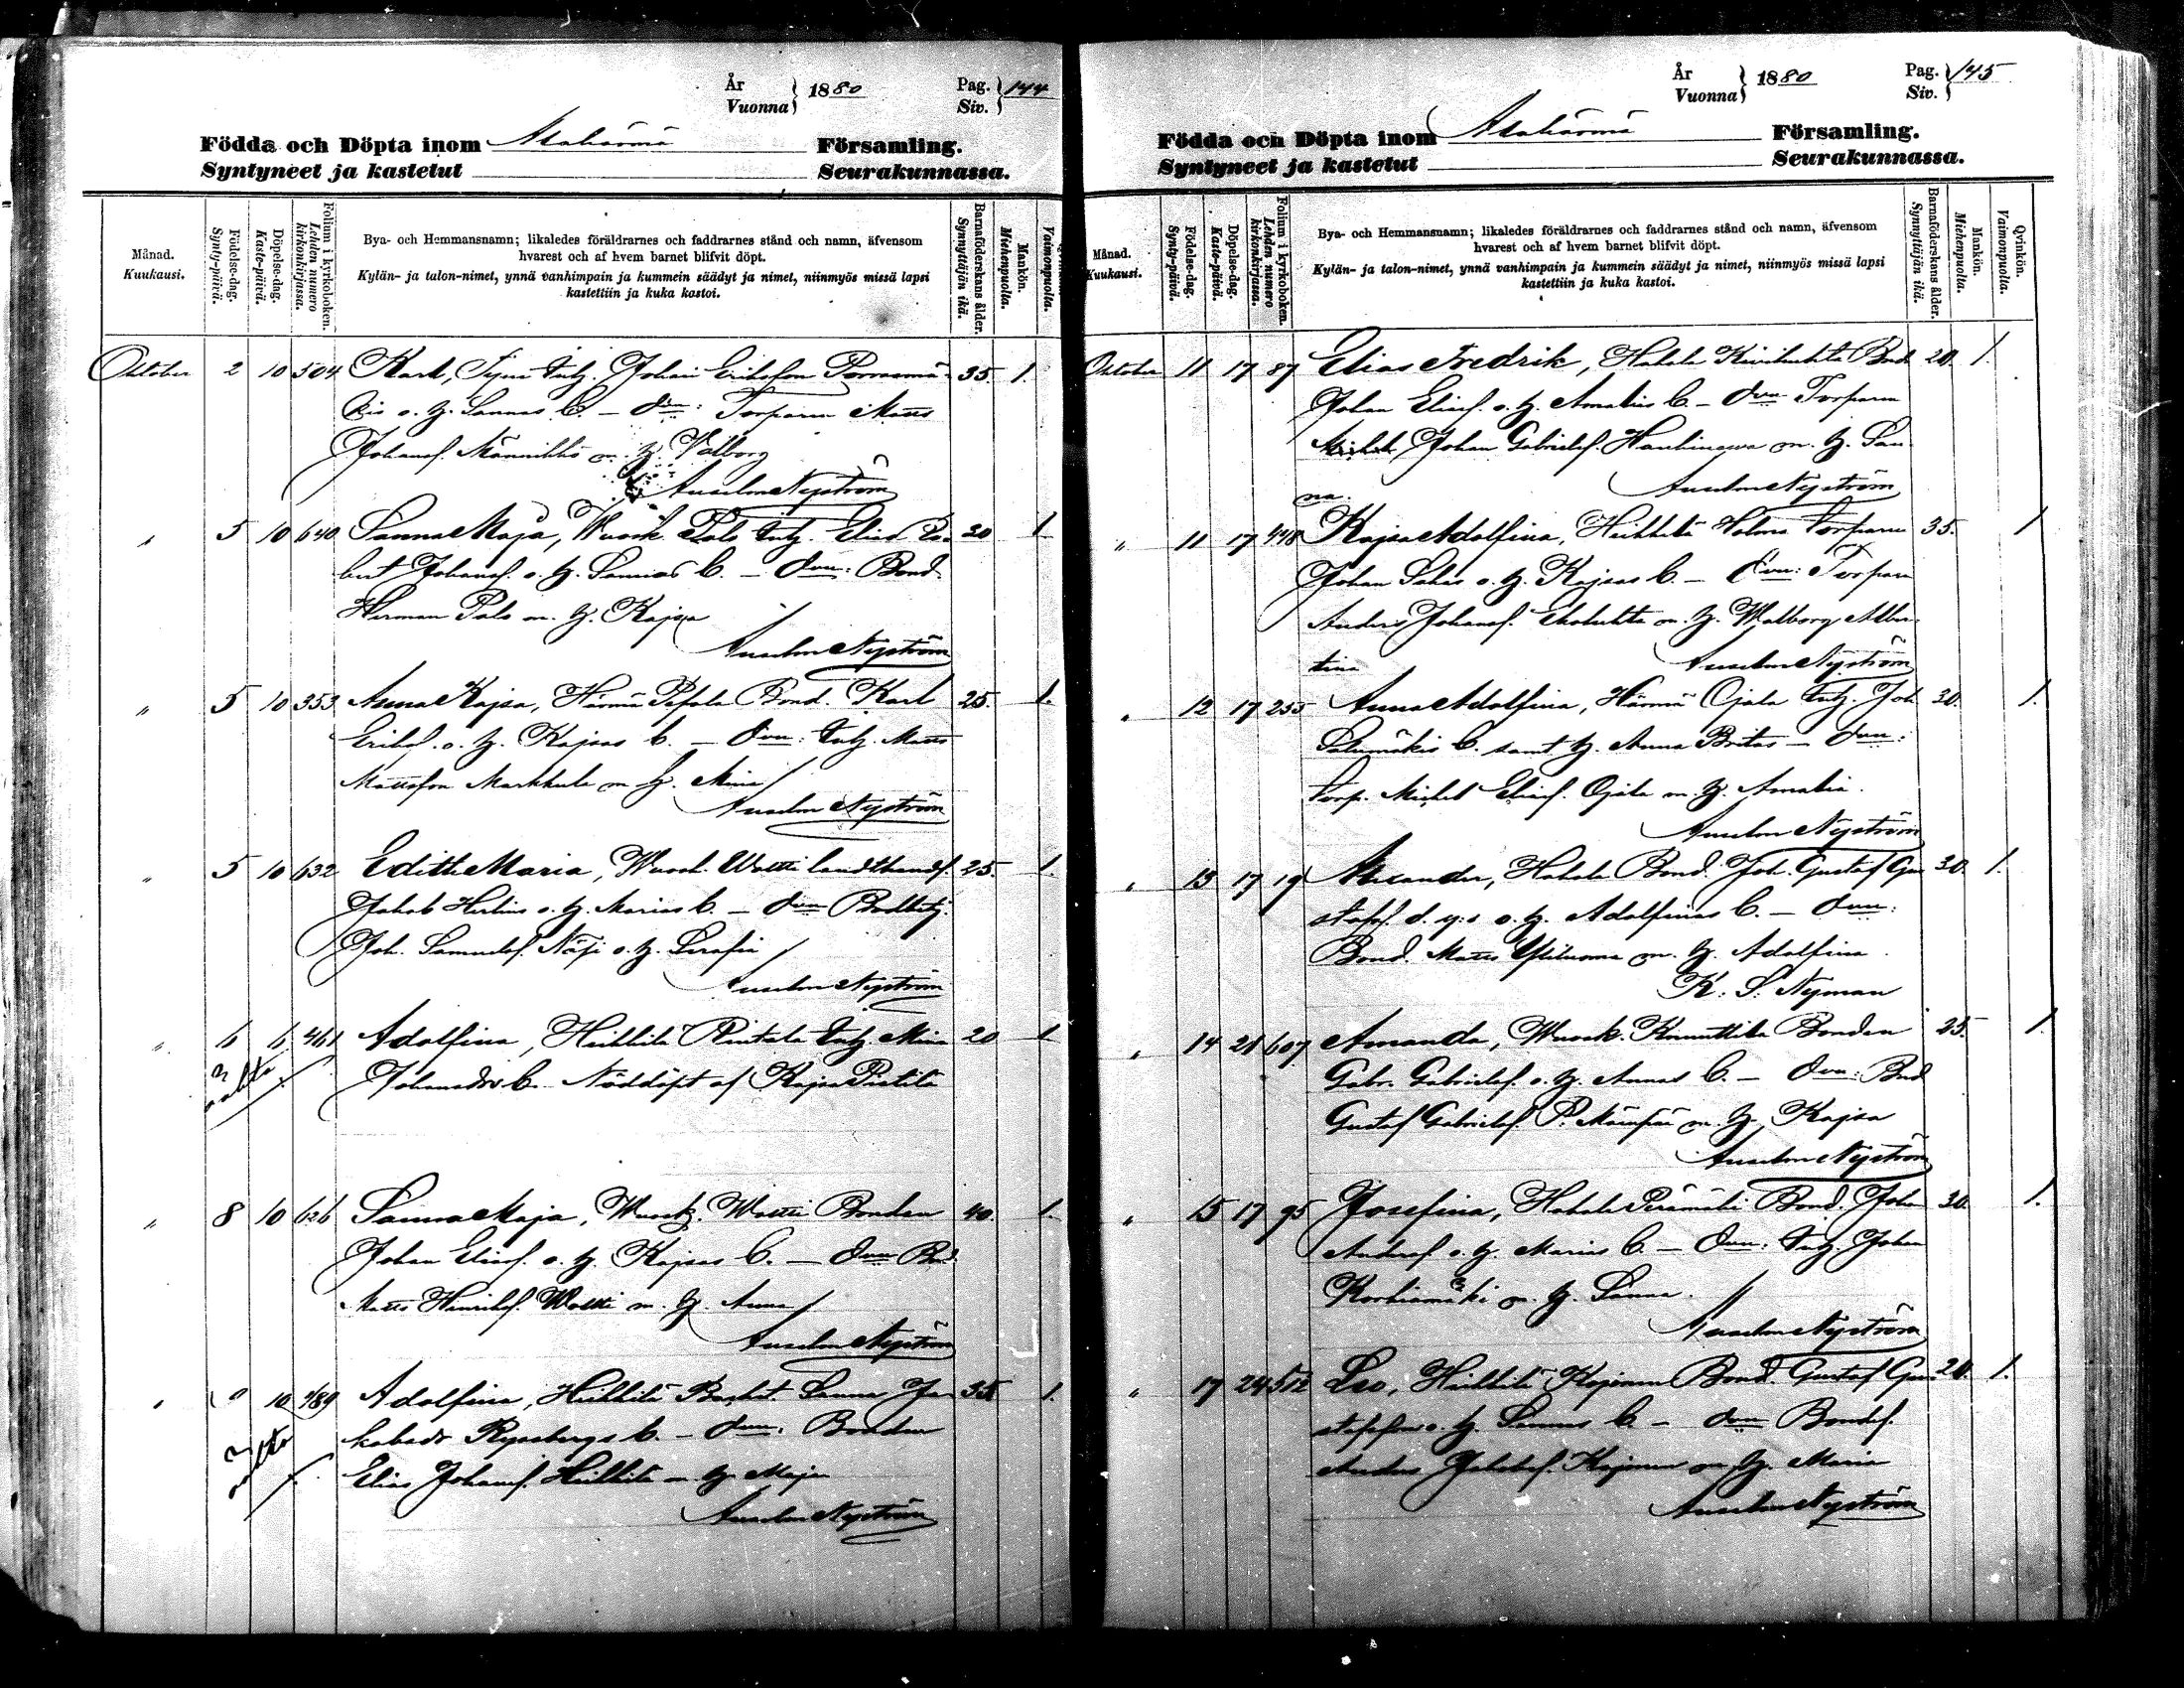 År
Vuonna } 1880
Pag.
Siv. } 144
Födda och Döpta inom Alahärmä Församling.
Syntyneet ja kastetut Seurakunnassa.
Månad.
Kuukausi.
Födelse-dag.
Synty-päivä.
Döpelse-dag.
Kaste-päivä.
Folium i kyrkoboken.
Lehden numero
kirkonkirjassa.
Bya- och Hemmansnamn; likaledes föräldrarnes och faddrarnes stånd och namn, äfvensom
hvarest och af hvem barnet blifvit döpt.
Kylän- ja talon-nimet, ynnä vanhimpain ja kummein säädyt ja nimet, niinmyös missä lapsi
kastettiin ja kuka kastoi.
Barnaföderskans ålder.
Synnyttäjän ikä.
Mankön.
Miehenpuolla.
Vaimonpuolla.
Oktober 2 10 504 Karl, Johan Erikson 35. 1.
o. h. Sannas b. – dvn: Torparen Matts
Johansf. Männikkö m. h. Valborg
Anselm Nyström
" 5 10 640 Sanna Maja, Wuosk. Palo Elias 30 1
Johansf. o. h. Sannas b. – dvn: Bond.
Herman Palo m. h. Kajsa
Anselm Nyström
" 5 10 353 Anna Kajsa, Härmä Bond. Karl 25. 1.
Eriksf. o. h. Kajsas b. – dvn: Matts
Mattsson Markkula m. h. Mina
Anselm Nyström
" 5 10 632 Edith Maria, Wuosk. Woltti landthandl. 25. 1.
Jakob o. h. Marias b. – dvn
Joh. Samuelsf. o. h. Serafia
Anselm Nyström
" 6 6 461 Adolfina, Heikkilä Rintala Mina 20 1
Johansdr b. Nöddöpt af Kajsa Pietilä
" 8 10 626 Sanna Maja, Wuosk. Woltti Bonden 40. 1.
Johan Eliasf. o. h. Kajsas b. – dvn Bnd.
Matts Henriksf. Woltti m. h. Anna
Anselm Nyström
" 10 489 Adolfina, Heikkilä Sanna Ja- 35 1.
kobsdr b. – dvn: Bonden
Elias Johansf. Heikkilä m. h. Maja
Anselm Nyström
År
Vuonna } 1880
Pag.
Siv. } 145
Födda och Döpta inom Alahärmä Församling.
Syntyneet ja kastetut Seurakunnassa.
Månad.
Kuukausi.
Födelse-dag.
Synty-päivä.
Döpelse-dag.
Kaste-päivä.
Folium i kyrkoboken.
Lehden numero
kirkonkirjassa.
Bya- och Hemmansnamn; likaledes föräldrarnes och faddrarnes stånd och namn, äfvensom
hvarest och af hvem barnet blifvit döpt.
Kylän- ja talon-nimet, ynnä vanhimpain ja kummein säädyt ja nimet, niinmyös missä lapsi
kastettiin ja kuka kastoi.
Barnaföderskans ålder.
Synnyttäjän ikä.
Mankön.
Miehenpuolla.
Qvinkön.
Vaimonpuolla.
Oktober 11 17 87 Elias Fredrik, Hakala Bnd 20. 1.
Johan Eliasf. o. h. Amalias b. – dvn Torparen
Johan Gabrielsf. m. h. San-
na. Anselm Nyström
" 11 17 448 Kajsa Adolfina, Heikkilä Holma Torparen 35. 1
Johan o. h. Kajsas b. – dvn: Torparen
Anders Johansf. m. h. Walborg Alber-
tina Anselm Nyström
" 12 17 255 Anna Adolfina, Härmä Ojala Joh 30. 1.
b. samt h. Anna Britas – dvn:
Torp. Michel Eliasf. Ojala m. h. Amalia.
Anselm Nyström
" 13 17 19 Alexander, Hakala Bond. Joh. Gustaf Gu- 30. 1.
stafsf. d. y:s o. h. Adolfinas b. – dvn:
Bond. Matts Yliluoma m. h. Adolfina.
K. S. Nyman
" 14 21 607 Amanda, Wuosk. Knuuttila Bonden 25. 1.
Gabr. Gabrielsf. o. h. Annas b. – dvn: Bnd
Gustaf Gabrielsf. m. h. Kajsa
Anselm Nyström
" 15 17 95 Josefina, Hakala Perämäki Bond. Johan 30. 1.
Andersf. o. h. Marias b. – dvn: Johan
Korkiamäki m. h. Sanna.
Anselm Nyström
" 17 24 512 Leo, Heikkilä Kojonen Bond. Gustaf Gu- 20. 1.
stafsson o. h. Sannas b. – dvn Bondes.
Anders Jakobsf. Kojonen m. h. Maria
Anselm Nyström